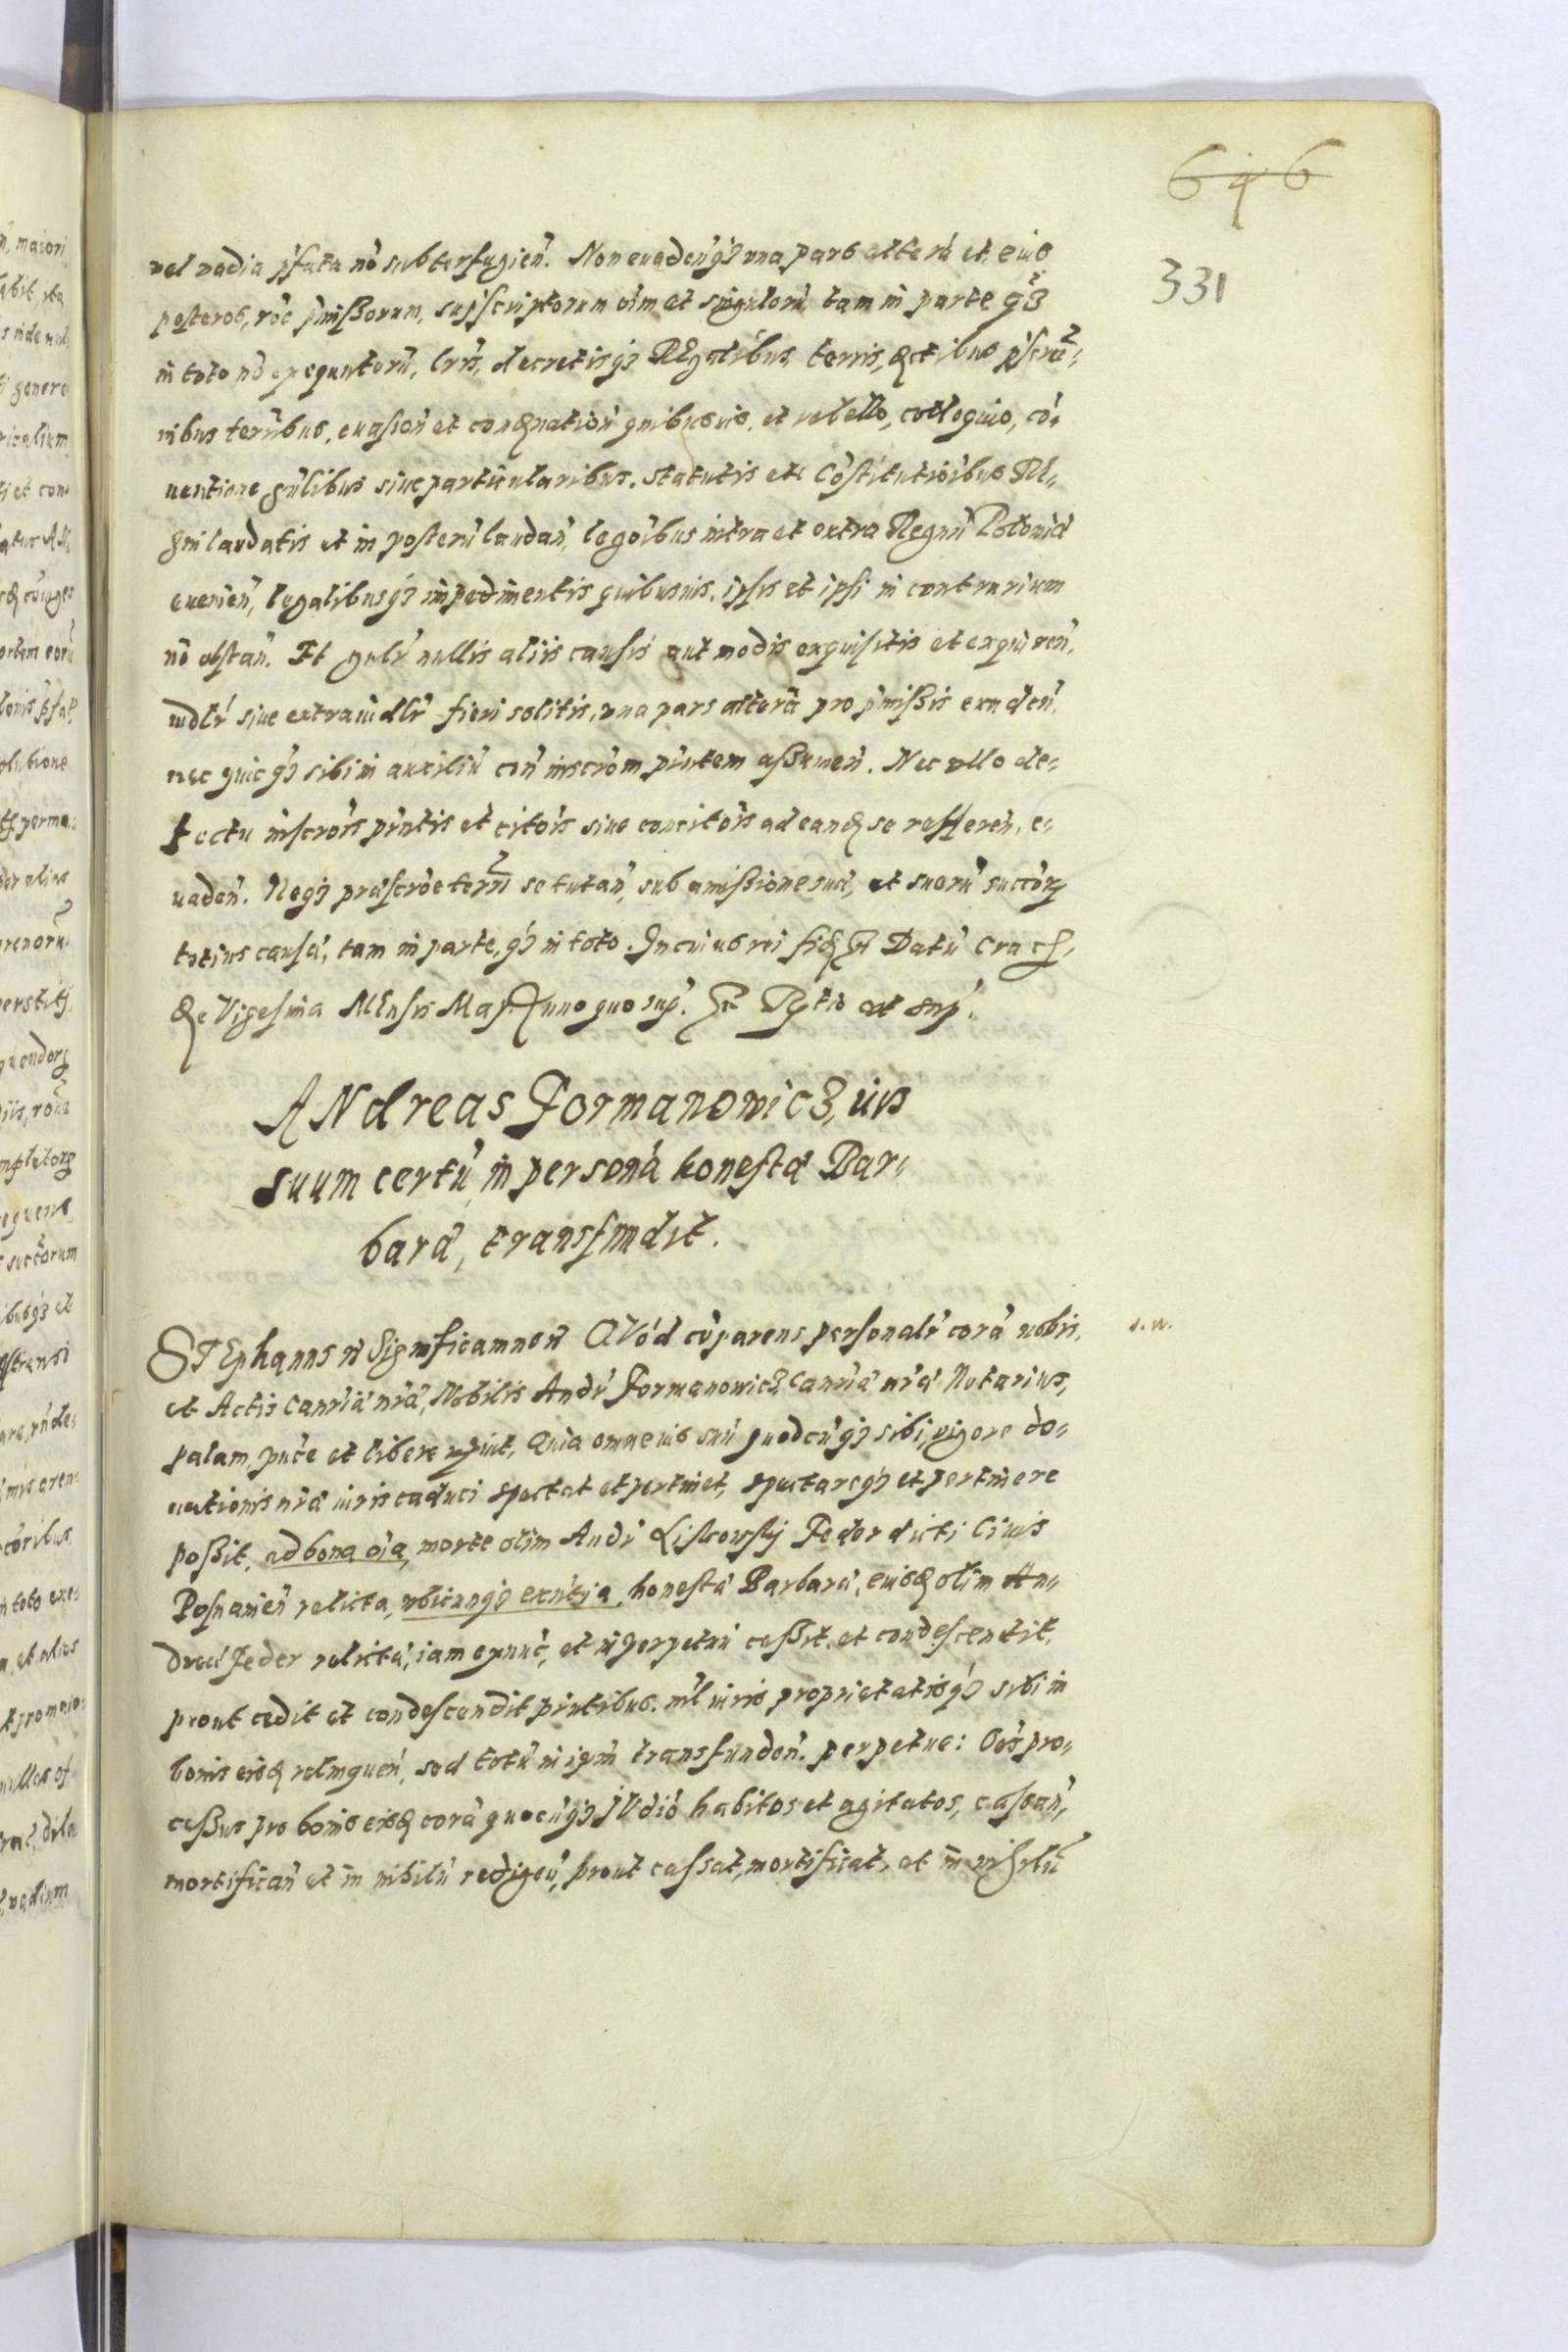 646
331
vel vadia pʼfata nō subterfugień. Non evadenqȝ una pars alterā et eius
posteros, rōe pʼmißorum, supʼscriptorum oīm et singulorū, tam in parte qȝ
in toto nō exequutorū, lrīs, decretisqȝ REgalibus, terris,
nibus terībus, evasioń et quibusvis, et rebello, colloquio, cō-
ventione gnālibus sive particularibus. Statutis et Cōstitutiōibus RE-
gni laudatis et in posterū laudań, legoibus intra et extra Regnū Poloniæ
evenień, legalibusqȝ impedimentis quibusuis, ipsis et ipsi in contrarium
nō obstań. Et gnalr nullis aliis causis aut modis exquisitis et exquireń,
iudlr sive extraiudlr fieri solitis, una pars alterā pro pʼmißis evadeń,
nec quicqȝ sibi in auxiliū coń inscrōm pʼntem aßumeń. Nec ullo de-
fectu inscrōis pʼntis et citōis sive concitōis ad eand se reffereń, e-
vadeń. Neqȝ præscrōe terrī se tutań, sub amißione suæ, et suorū succōrꝫ
totius causæ, tam in parte, qȝ in toto. In cuius rei fidē Datū Crac.
Die Vigesima MEnsis Maij Anno quo sup. ut sup.
ANdreas Formanowicz, ius
suum certū in personā honestæ Bar-
baræ, transfundit.
STEphanus Significamus Quod cōparens personalr corā nobis, s. n.
et Actis Canriæ nræ, Nobilis Andr Formanowicz Canriæ nræ Notarius,
palam, puce et libere Quia omne ius suū quodcunqȝ sibi, vigore do-
nationis nræ iuris caduci spectat et pertinet, spectareqȝ et pertinere
poßit, ad bona oīa, morte olim Andr Liskowsky Feder dicti Ciuis
Posnanień relicta, ubicunqȝ exntia, honestæ Barbaræ, eiusd olim An-
dreæ Feder relictæ, iam exnunc, et in perpetuū ceßit, et condescendit,
prout cedit et condescendit pʼntibus. nil iuris proprietatisqȝ sibi in
bonis eisd relinqueń, sed totū in ipām transfundeń. perpetue: Oēs pro-
ceßus pro bonis eisd corā quocunqȝ iUdiō habitos et agitatos, cassań,
mortificań et in nihilū redigeń, prout cassat, mortificat, et in nihilū